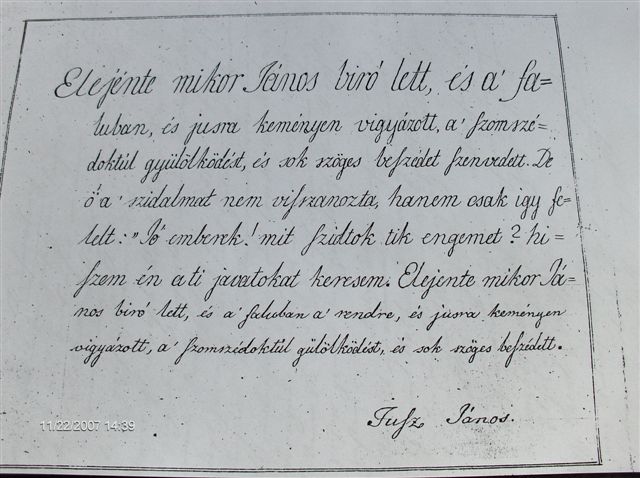 Elejénte mikor János biró lett, és a' fa=
luban, és jusra keményen vigyázott, a' szomszé=
doktúl gyülölködést, és sok szöges beſzédet szenvedett. De
ő a' szidalmat nem viſszanozta, hanem csak igy fe=
lelt: "Jó emberek! mit szidtok tik engemet? hi=
szem én a ti javatokat keresem. Elejente mikor Já=
nos biró lett, és a' faluban a' rendre, és jusra keményen
vigyázott, a' szomszédoktúl gülölködést, és sok szöges beſzédett.
Juſz János.
11/22/2007 14:39